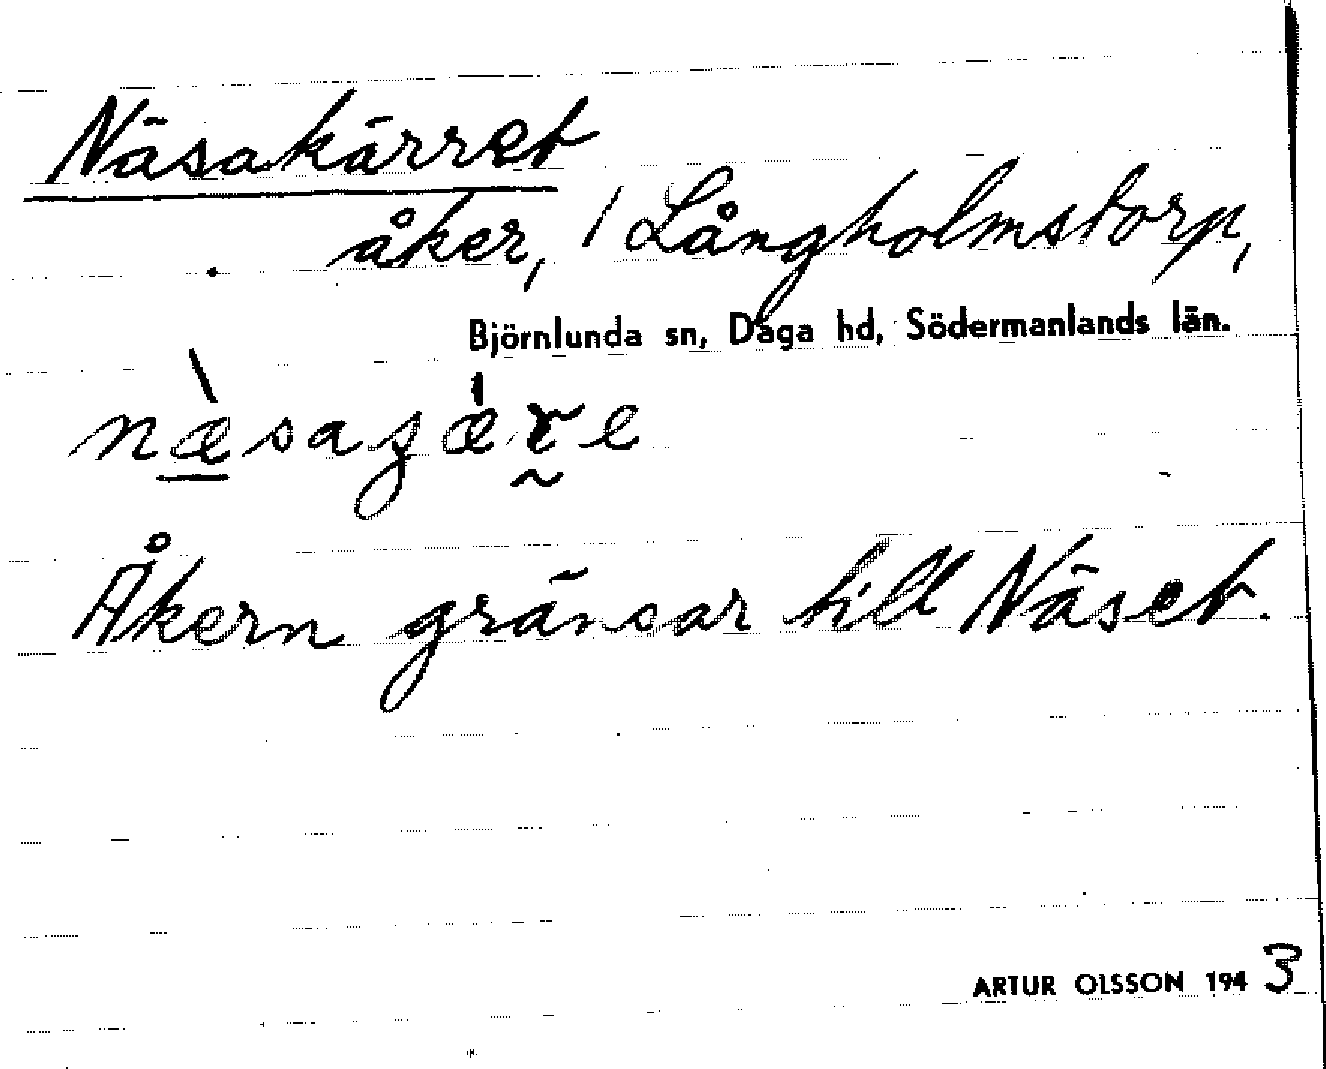 Näsakärret
åker, / Långholmstorp,
Björnlunda sn, Daga hd, Södermanlands län.
Åkern gränsar till Näset.
ARTUR OLSSON 1943